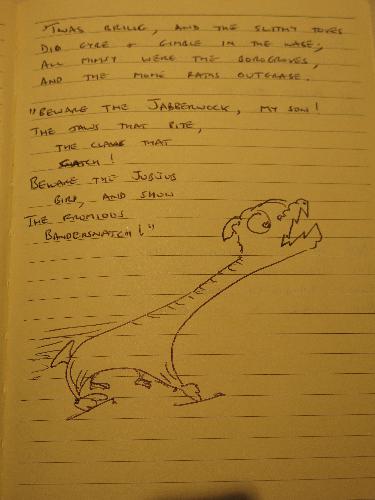 "TWAS BRILIG, AND THE SLITHY TOVES
DID GYRE & GIMBLE IN THE WABE;
ALL MIMSY WERE THE BOROGROVES,
AND THE MOME RATHS OUTGRABE.
"BEWARE THE JABBERWOCK, MY SON!
THE JAWS THAT BITE,
THE CLAWS THAT
SNATCH!
BEWARE THE JUBJUB
BIRD, AND SHUN
THE FRUMIOUS
BANDERSNATCH!"